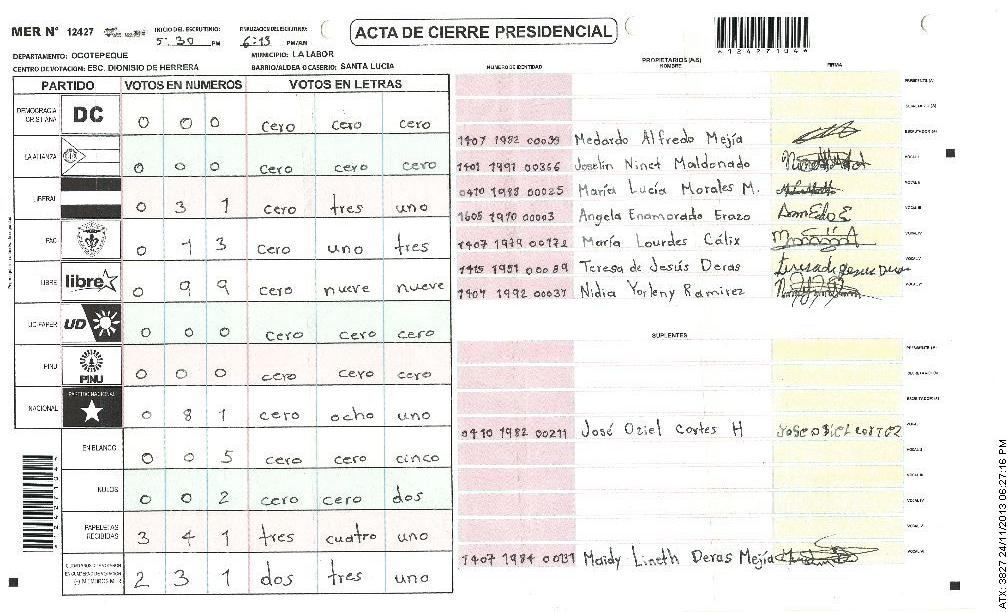 MER Nº 12427
INICIO DEL ESCRUTINIO: 5:30 PM
FINALIZACION DEL ESCRUTINIO: 6:13 PM/AM
ACTA DE CIERRE PRESIDENCIAL
DEPARTAMENTO: OCOTEPEQUE
MUNICIPIO: LA LABOR
CENTRO DE VOTACION: ESC. DIONISIO DE HERRERA
BARRIO/ALDEA O CASERIO: SANTA LUCIA
PARTIDO VOTOS EN NUMEROS VOTOS EN LETRAS
DEMOCRACIA CRISTIANA DC 0 0 0 cero cero cero
LA ALIANZA 0 0 0 cero cero cero
LIBERAL 0 3 1 cero tres uno
0 1 3 cero uno tres
LIBRE libre 0 9 9 cero nueve nueve
UD FAPER UD 0 0 0 cero cero cero
PINU PINU 0 0 0 cero cero cero
NACIONAL PARTIDO NACIONAL 0 8 1 cero ocho uno
EN BLANCO 0 0 5 cero cero cinco
NULOS 0 0 2 cero cero dos
PAPELETAS RECIBIDAS 3 4 1 tres cuatro uno
2 3 1 dos tres uno
NUMERO DE IDENTIDAD
PROPIETARIOS (AS)
NOMBRE
FIRMA
Medardo Alfredo Mejía
Joselin Ninet Maldonado
0410 1988 00025 María Lucía Morales M.
1605 1970 00003 Angela Enamorado Erazo
María Lourdes Cálix
Teresa de Jesús Deras
1407 1992 00037 Nidia Yorleny Ramirez
SUPLENTES
0410 1982 00211 José Oziel Cortes H
Maidy Lineth Deras Mejía
ATX: 3827 24/11/2013 06:27:16 PM